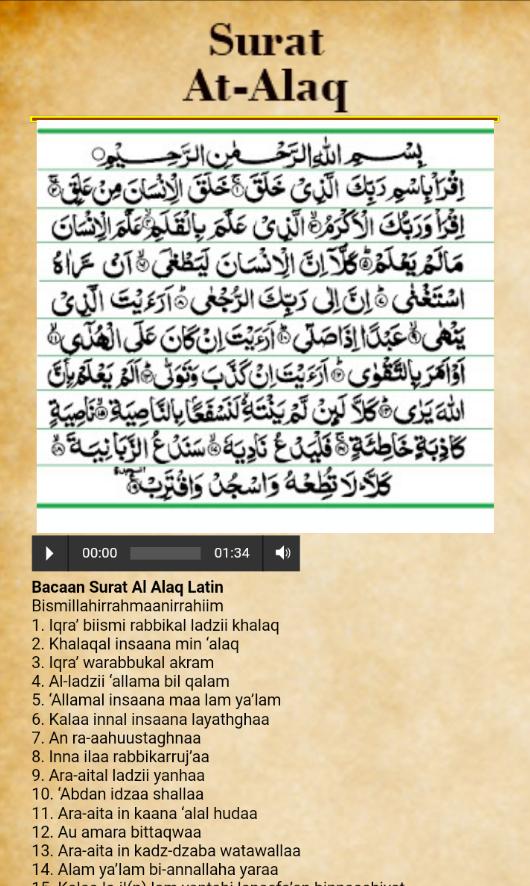 Surat
At-Alaq
بِسْمِ اللهِ الرَّحْمٰنِ الرَّحِيْمِ
اِقْرَأْ بِاسْمِ رَبِّكَ الَّذِىْ خَلَقَ ۱ خَلَقَ الْاِنْسَانَ مِنْ عَلَقٍ ۲
اِقْرَأْ وَرَبُّكَ الْاَكْرَمُ ۳ الَّذِىْ عَلَّمَ بِالْقَلَمِ ۴ عَلَّمَ الْاِنْسَانَ
مَالَمْ يَعْلَمْ ۵ كَلَّآ اِنَّ الْاِنْسَانَ لَيَطْغٰى ۶ اَنْ رَّاٰهُ
اسْتَغْنٰى ۷ اِنَّ اِلٰى رَبِّكَ الرُّجْعٰى ۸ اَرَءَيْتَ الَّذِىْ
يَنْهٰى ۹ عَبْدًا اِذَا صَلّٰى ۱۰ اَرَءَيْتَ اِنْ كَانَ عَلَى الْهُدٰٓى ۱۱
اَوْ اَمَرَ بِالتَّقْوٰى ۱۲ اَرَءَيْتَ اِنْ كَذَّبَ وَتَوَلّٰى ۱۳ اَلَمْ يَعْلَمْ بِاَنَّ
اللهَ يَرٰى ۱۴ كَلَّا لَىِٕنْ لَّمْ يَنْتَهِ لَنَسْفَعًا بِالنَّاصِيَةِ ۱۵ نَاصِيَةٍ
كَاذِبَةٍ خَاطِئَةٍ ۱۶ فَلْيَدْعُ نَادِيَهٗ ۱۷ سَنَدْعُ الزَّبَانِيَةَ ۱۸
كَلَّا لَا تُطِعْهُ وَاسْجُدْ وَاقْتَرِبْ ۱۹
00:00 01:34
Bacaan Surat Al Alaq Latin
Bismillahirrahmaanirrahiim
1. Iqra’ biismi rabbikal ladzii khalaq
2. Khalaqal insaana min ‘alaq
3. Iqra’ warabbukal akram
4. Al-ladzii ‘allama bil qalam
5. ‘Allamal insaana maa lam ya’lam
6. Kalaa innal insaana layathghaa
7. An ra-aahuustaghnaa
8. Inna ilaa rabbikarruj’aa
9. Ara-aital ladzii yanhaa
10. ‘Abdan idzaa shallaa
11. Ara-aita in kaana ‘alal hudaa
12. Au amara bittaqwaa
13. Ara-aita in kadz-dzaba watawallaa
14. Alam ya’lam bi-annallaha yaraa